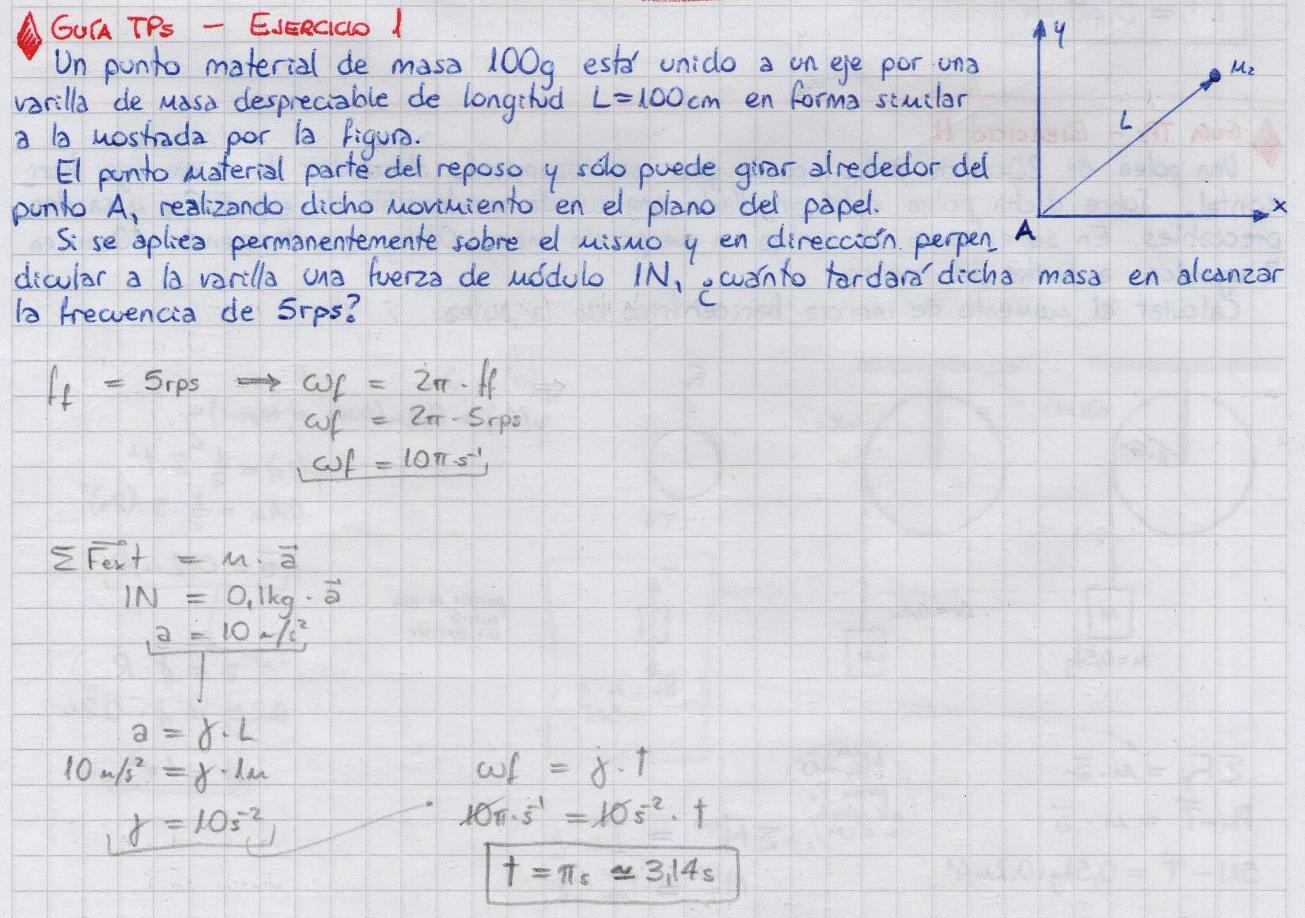 GUÍA TPs – EJERCICIO 1
Un punto material de masa 100g está unido a un eje por una
varilla de masa despreciable de longitud L=100cm en forma similar
a la mostrada por la figura.
El punto material parte del reposo y sólo puede girar alrededor del
punto A, realizando dicho movimiento en el plano del papel.
Si se aplica permanentemente sobre el mismo y en dirección perpen_
dicular a la varilla una fuerza de módulo 1N, ¿cuánto tardará dicha masa en alcanzar
la frecuencia de 5rps?
y
m₂
L
x
A
f_f = 5rps → ωf = 2π · ff
ωf = 2π · 5rps
ωf = 10π s⁻¹
Σ Fext = m · a
1N = 0,1kg · a
a = 10 m/s²
a = γ · L
10 m/s² = γ · 1m
γ = 10s⁻²
ωf = γ · t
10π · s⁻¹ = 10s⁻² · t
t = πs ≃ 3,14s